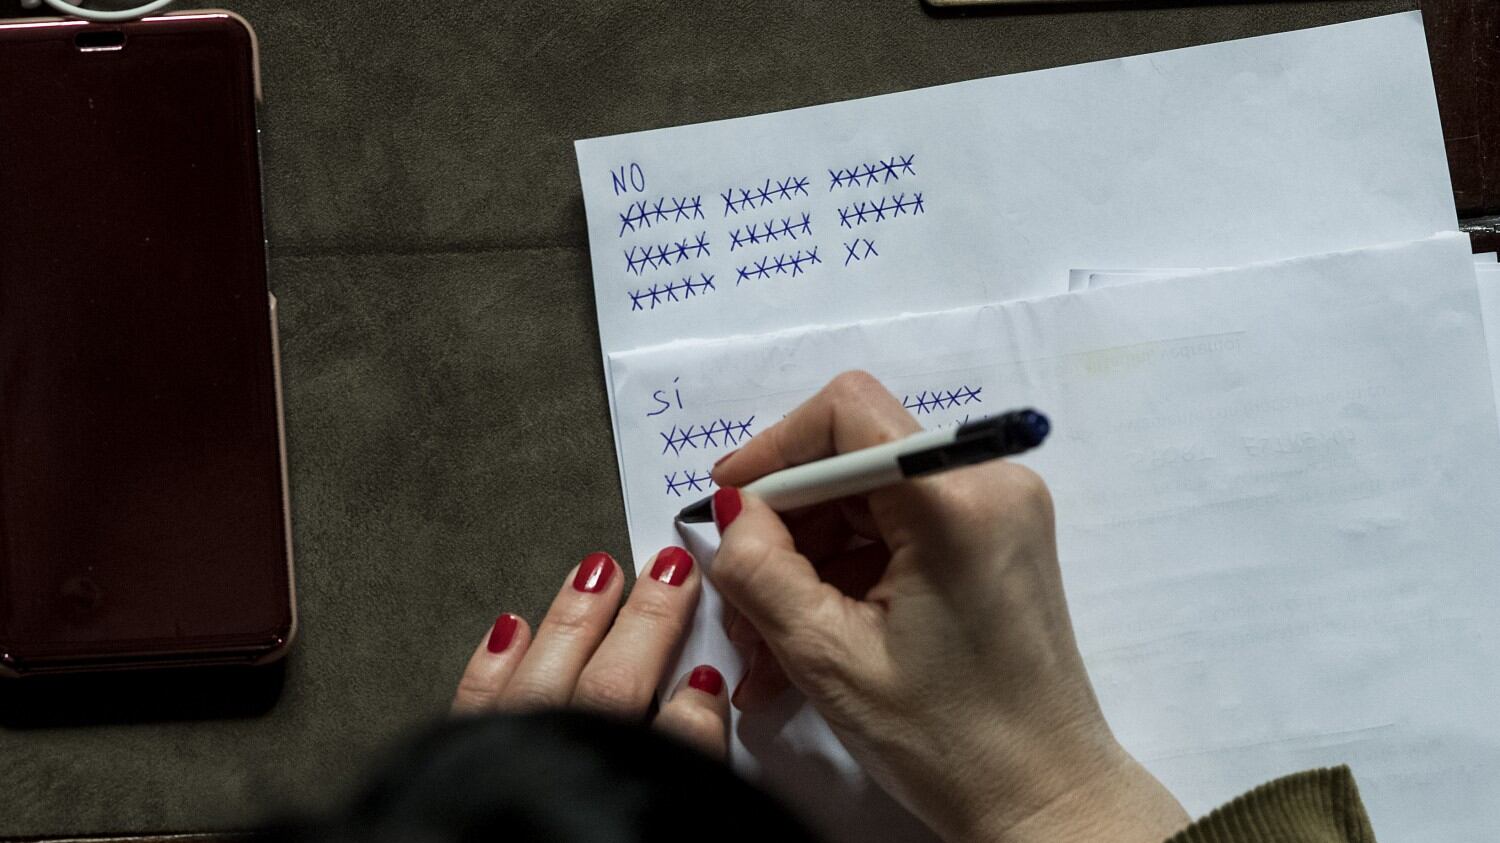 NO
XXXXX XXXXX XXXXX
XXXXX XXXXX XXXXX
XXXXX XXXXX XX
SÍ
XXXXX XXXXX
XXX